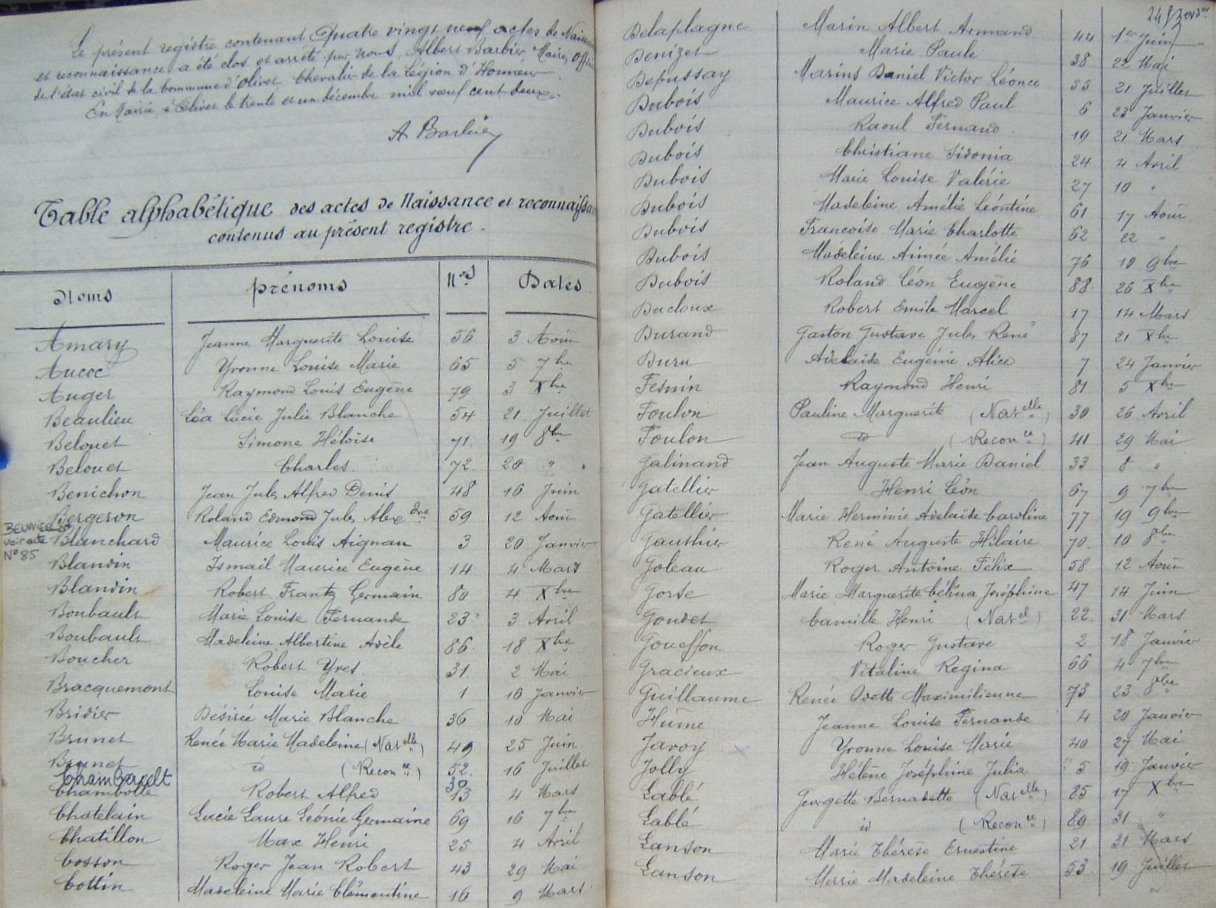 Le présent registre contenant Quatre vingt neuf actes de Naissance
et reconnaissance a été clos et arrêté par nous, Albert Barbier Maire, Offi
de l'état civil de la commune d'Olivet, Chevalier de la Légion d'Honneur
En Mairie à Olivet le trente et un décembre mil neuf cent deux.
A Barbier
Table alphabétique des actes de Naissance et reconnaissan
contenus au présent registre.
Noms prénoms Nos Dates
Amary Jeanne Marguerite Louise 56 3 Août
Aucoc Yvonne Louise Marie 65 5 7bre
Auger Raymond Louis Eugène 79 3 Xbre
Beaulieu Léa Lucie Julie Blanche 54 21 Juillet
Belouet Simone Héloïse 71. 19 8bre
Belouet Charles. 72. 20 " "
Benichon Jean Jules Alfred Denis 48 16 Juin
Bergeron Roland Edmond Jules Alexdre 59 12 Août
voir acte
N°85
Blanchard Maurice Louis Aignan 3 20 Janvier
Blandin Ismaïl Maurice Eugène 14 4 Mars
Blandin Robert Frantz Germain 80 4 Xbre
Boubault Marie Louise Fernande 23 3 Avril
Boubault Madeleine Albertine Adèle 86. 18 Xbre
Boucher Robert Yves. 31. 2 Mai
Bracquemont Louise Marie 1 16 Janvier
Bridier Désirée Marie Blanche 36 10 Mai
Brunet Renée Marie Madeleine (Naselle) 49 25 Juin
Brunet id (Reconce) 52. 16 Juillet
Chambolle Robert Alfred 13 4 Mars
Chatelain Lucie Laure Léonie Germaine 69 16 7bre
Chatillon Max Henri 25 4 Avril
Cosson Roger Jean Robert 43 29 Mai
Cottin Madeleine Marie Clémentine 16 9 Mars.
Delaplagne Marin Albert Armand 44 1er Juin
Denizet Marie Paule 38 22 Mai
Depussay Marius Daniel Victor Léonce 55 21 Juillet
Dubois Maurice Alfred Paul 6 23 Janvier
Dubois Raoul Fernand 19 21 Mars
Dubois Christiane Sidonia 24 4 Avril
Dubois Marie Louise Valérie 27 10 "
Dubois Madeleine Amélie Léontine 61 17 Août
Dubois Françoise Marie Charlotte 62 22 "
Dubois Madeleine Aimée Amélie 76 10 9bre
Dubois Roland Léon Eugène 88. 26 Xbre
Ducloux Robert Emile Marcel 17 14 Mars
Durand Gaston Gustave Jules René 87 21 Xbre
Duru Adelaïde Eugénie Alice 7 24 Janvier
Fesnin Raymond Henri 81 5 Xbre
Foulon Pauline Marguerite (Naselle) 30 26 Avril
Foulon id (Reconce) 41 29 Mai
Galinand Jean Auguste Marie Daniel 33. 8 "
Gatellier Henri Léon 67 9 7bre
Gatellier Marie Herminie Adelaïde Caroline 77 19 9bre
Gauthier René Auguste Hilaire 70. 10 8bre
Goleau Roger Antoine Félix 58 12 Août
Gorse Marie Marguerite Célina Joséphine 47 14 Juin
Goudet Camille Henri (Natel) 22. 31 Mars
Goueffon Roger Gustave 2 18 Janvier
Gracieux Vitaline Regina 66 4 7bre
Guillaume Renée Odette Maximilienne 73 23 8bre
Hume Jeanne Louise Fernande 4 20 Janvier
Javoy Yvonne Louise Marie 40 27 Mai
Jolly Hélène Joséphine Julia 5 19 Janvier
Lablé Georgette Bernadette (Natelle) 85 17 Xbre
Lablé id (Reconce) 89 31 "
Lanson Marie Thérèse Ernestine 21 31 Mars
Lanson Marie Madeleine Thérèse 53. 19 Juillet